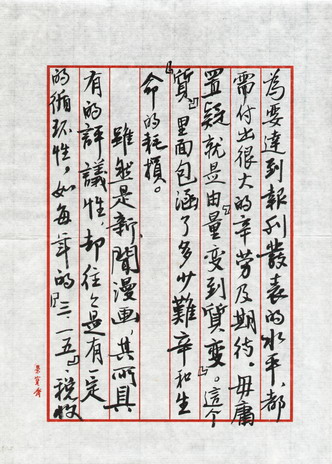 為要達到報刊發表的水平，都
需付出很大的辛勞及期待。毋庸
置疑就是由「量變到質變」。這个
「質」里面包涵了多少艱辛和生
命的耗損。
雖然是新聞漫画，其所具
有的評議性，却往々是有一定
的循环性，如每年的「三·一五」，稅收